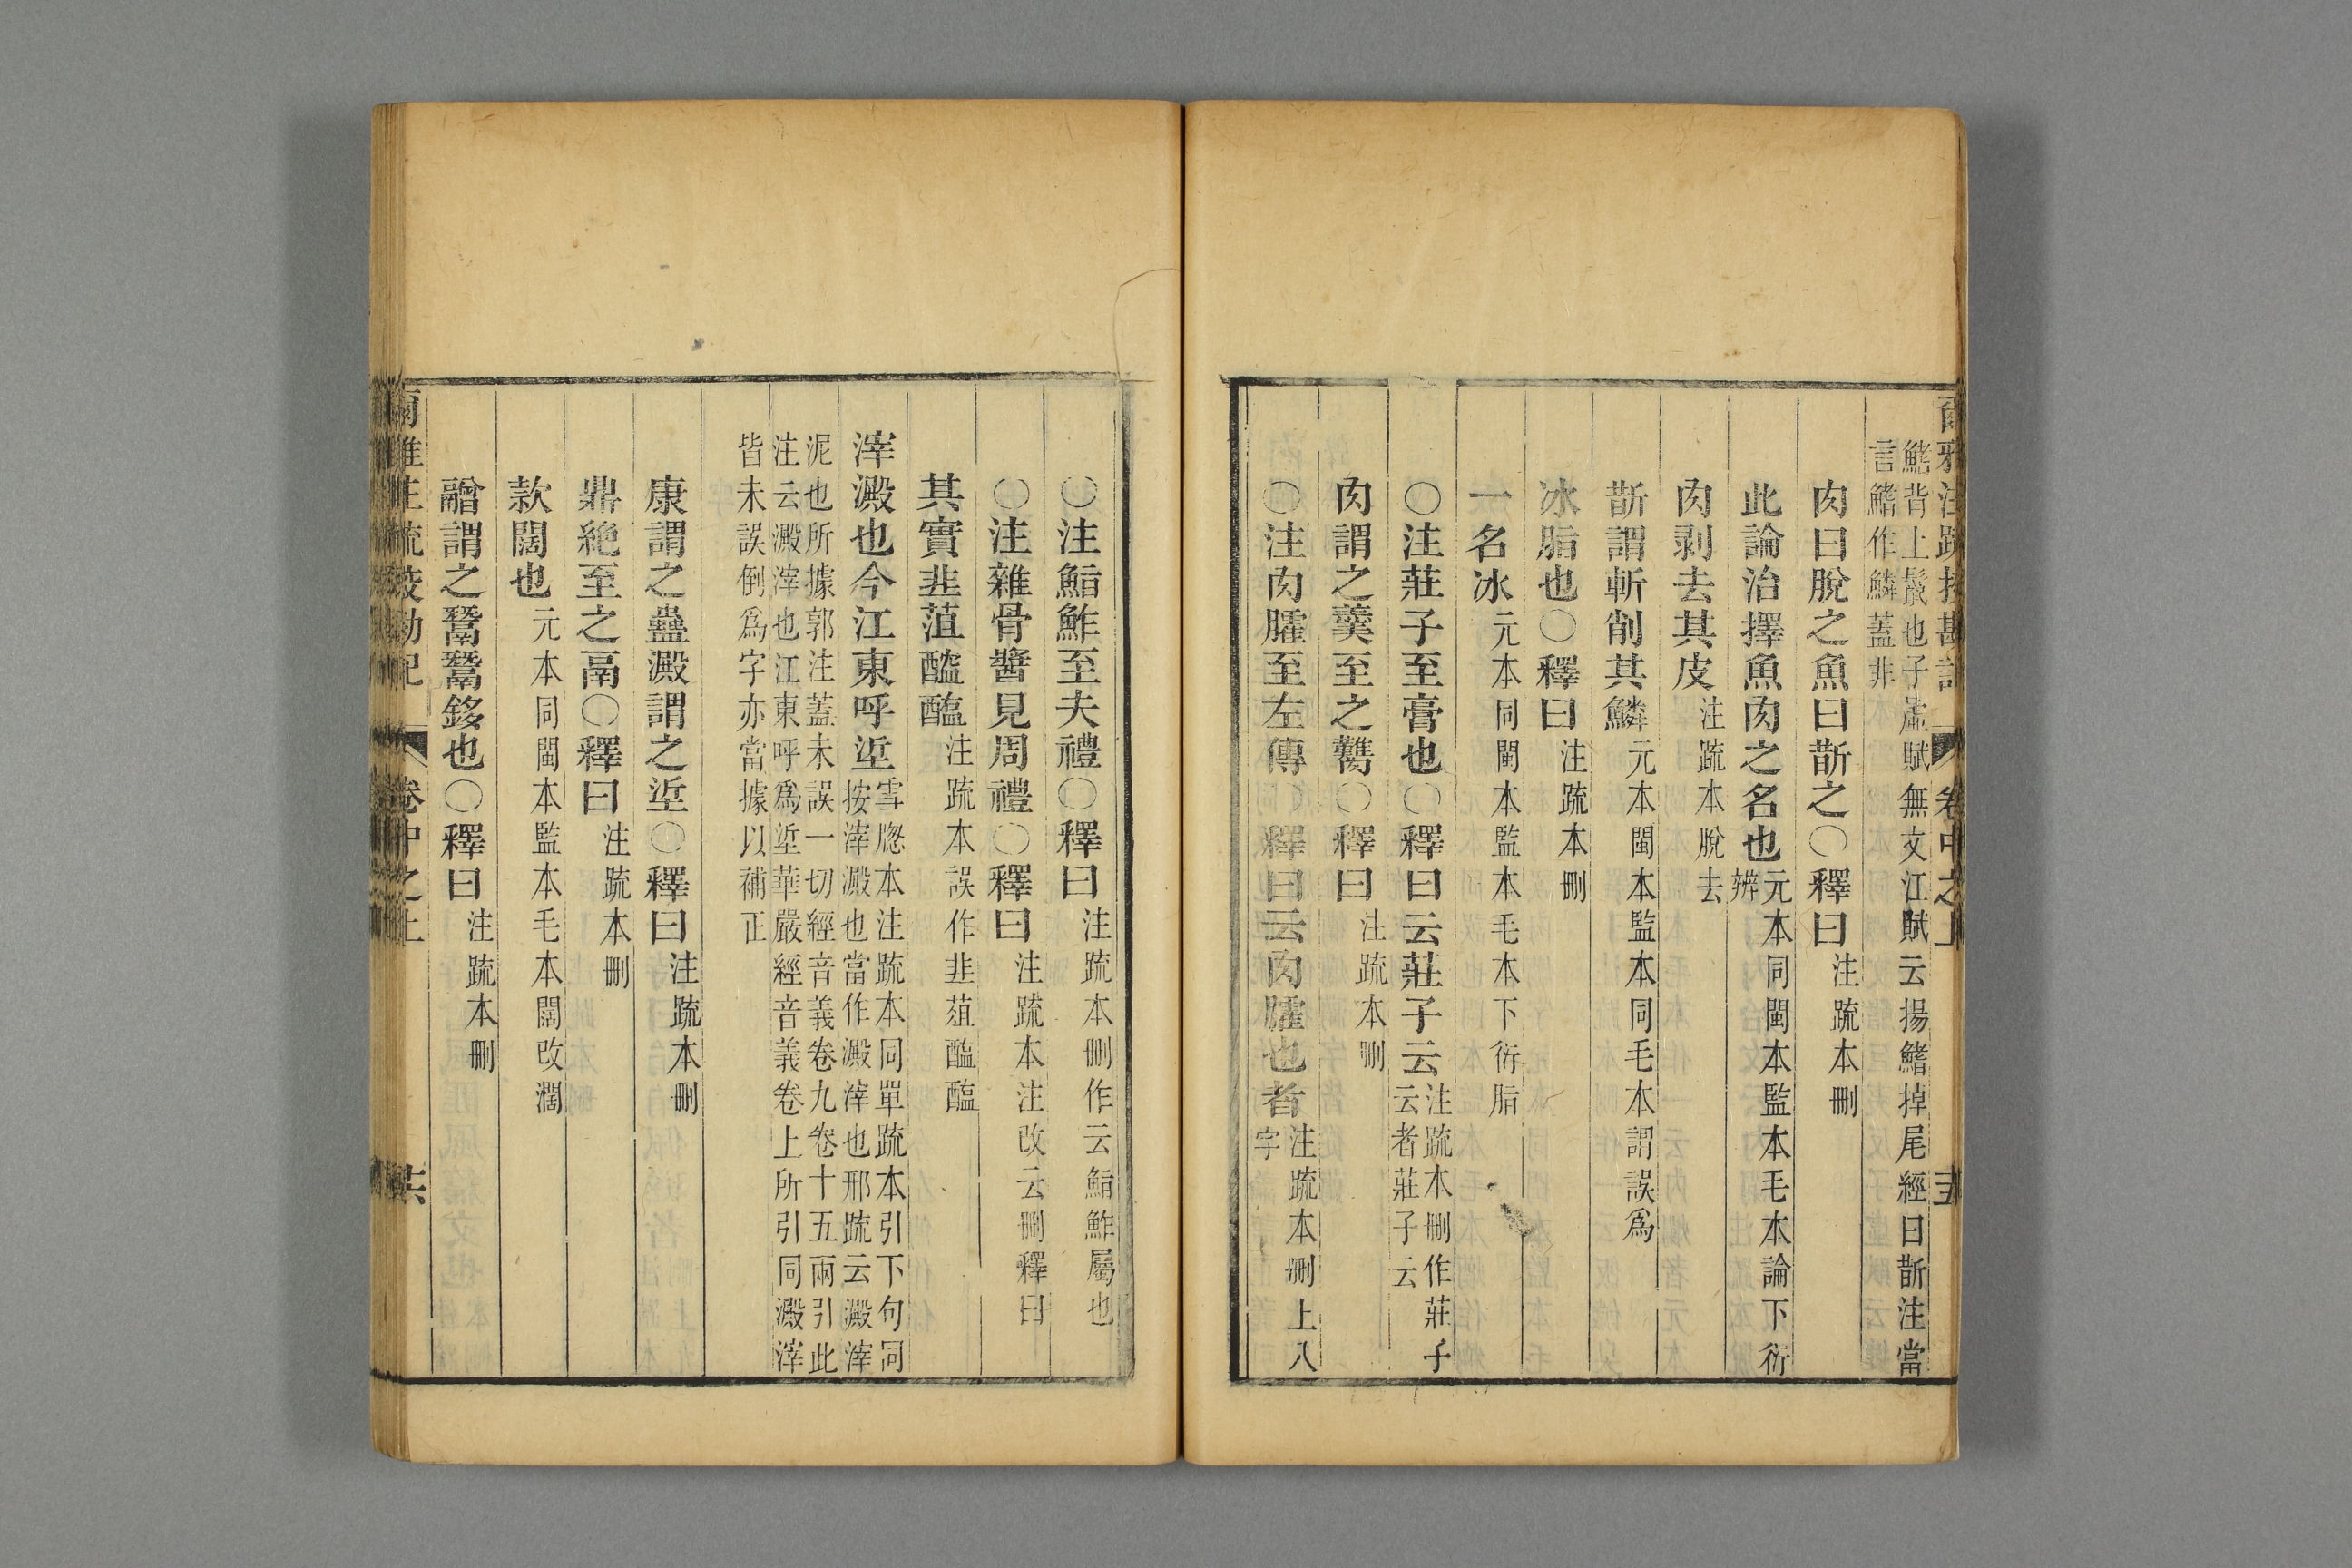 爾雅注疏挍勘記　卷中之上　十五
鰭背上鬛也子虛賦無文江賦云揚鰭掉尾經曰斮注當
言鰭作鱗蓋非
肉曰脫之魚曰斮之○釋曰注疏本刪
此論治擇魚肉之名也元本同閩本監本毛本論下衍
辨
肉剥去其皮注疏本脫去
斮謂斬削其鱗元本閩本監本同毛本謂誤爲
冰脂也○釋曰注疏本刪
一名冰元本同閩本監本毛本下衍脂
○注莊子至膏也○釋曰云莊子云注疏本刪作莊子
云者莊子云
肉謂之羹至之臡○釋曰注疏本刪
○注肉臛至左傳○釋曰云肉臛也者注疏本刪上八
字
○注鮨鮓至夫禮○釋曰注疏本刪作云鮨鮓屬也
○注雜骨醬見周禮○釋曰注疏本注改云刪釋曰
其實韭菹醓醢注疏本誤作韭葅醓醢
滓澱也今江東呼垽雪牕本注疏本同單疏本引下句同
按滓澱也當作澱滓也邢疏云澱滓
泥也所據郭注蓋未誤一切經音義卷九卷十五兩引此
注云澱滓也江東呼爲垽華嚴經音義卷上所引同澱滓
皆未誤倒爲字亦當據以補正
康謂之蠱澱謂之垽○釋曰注疏本刪
鼎絶至之鬲○釋曰注疏本刪
款闊也元本同閩本監本毛本闊改濶
䰝謂之鬵鬵鉹也○釋曰注疏本刪
爾雅注疏挍勘記　卷中之上　十六